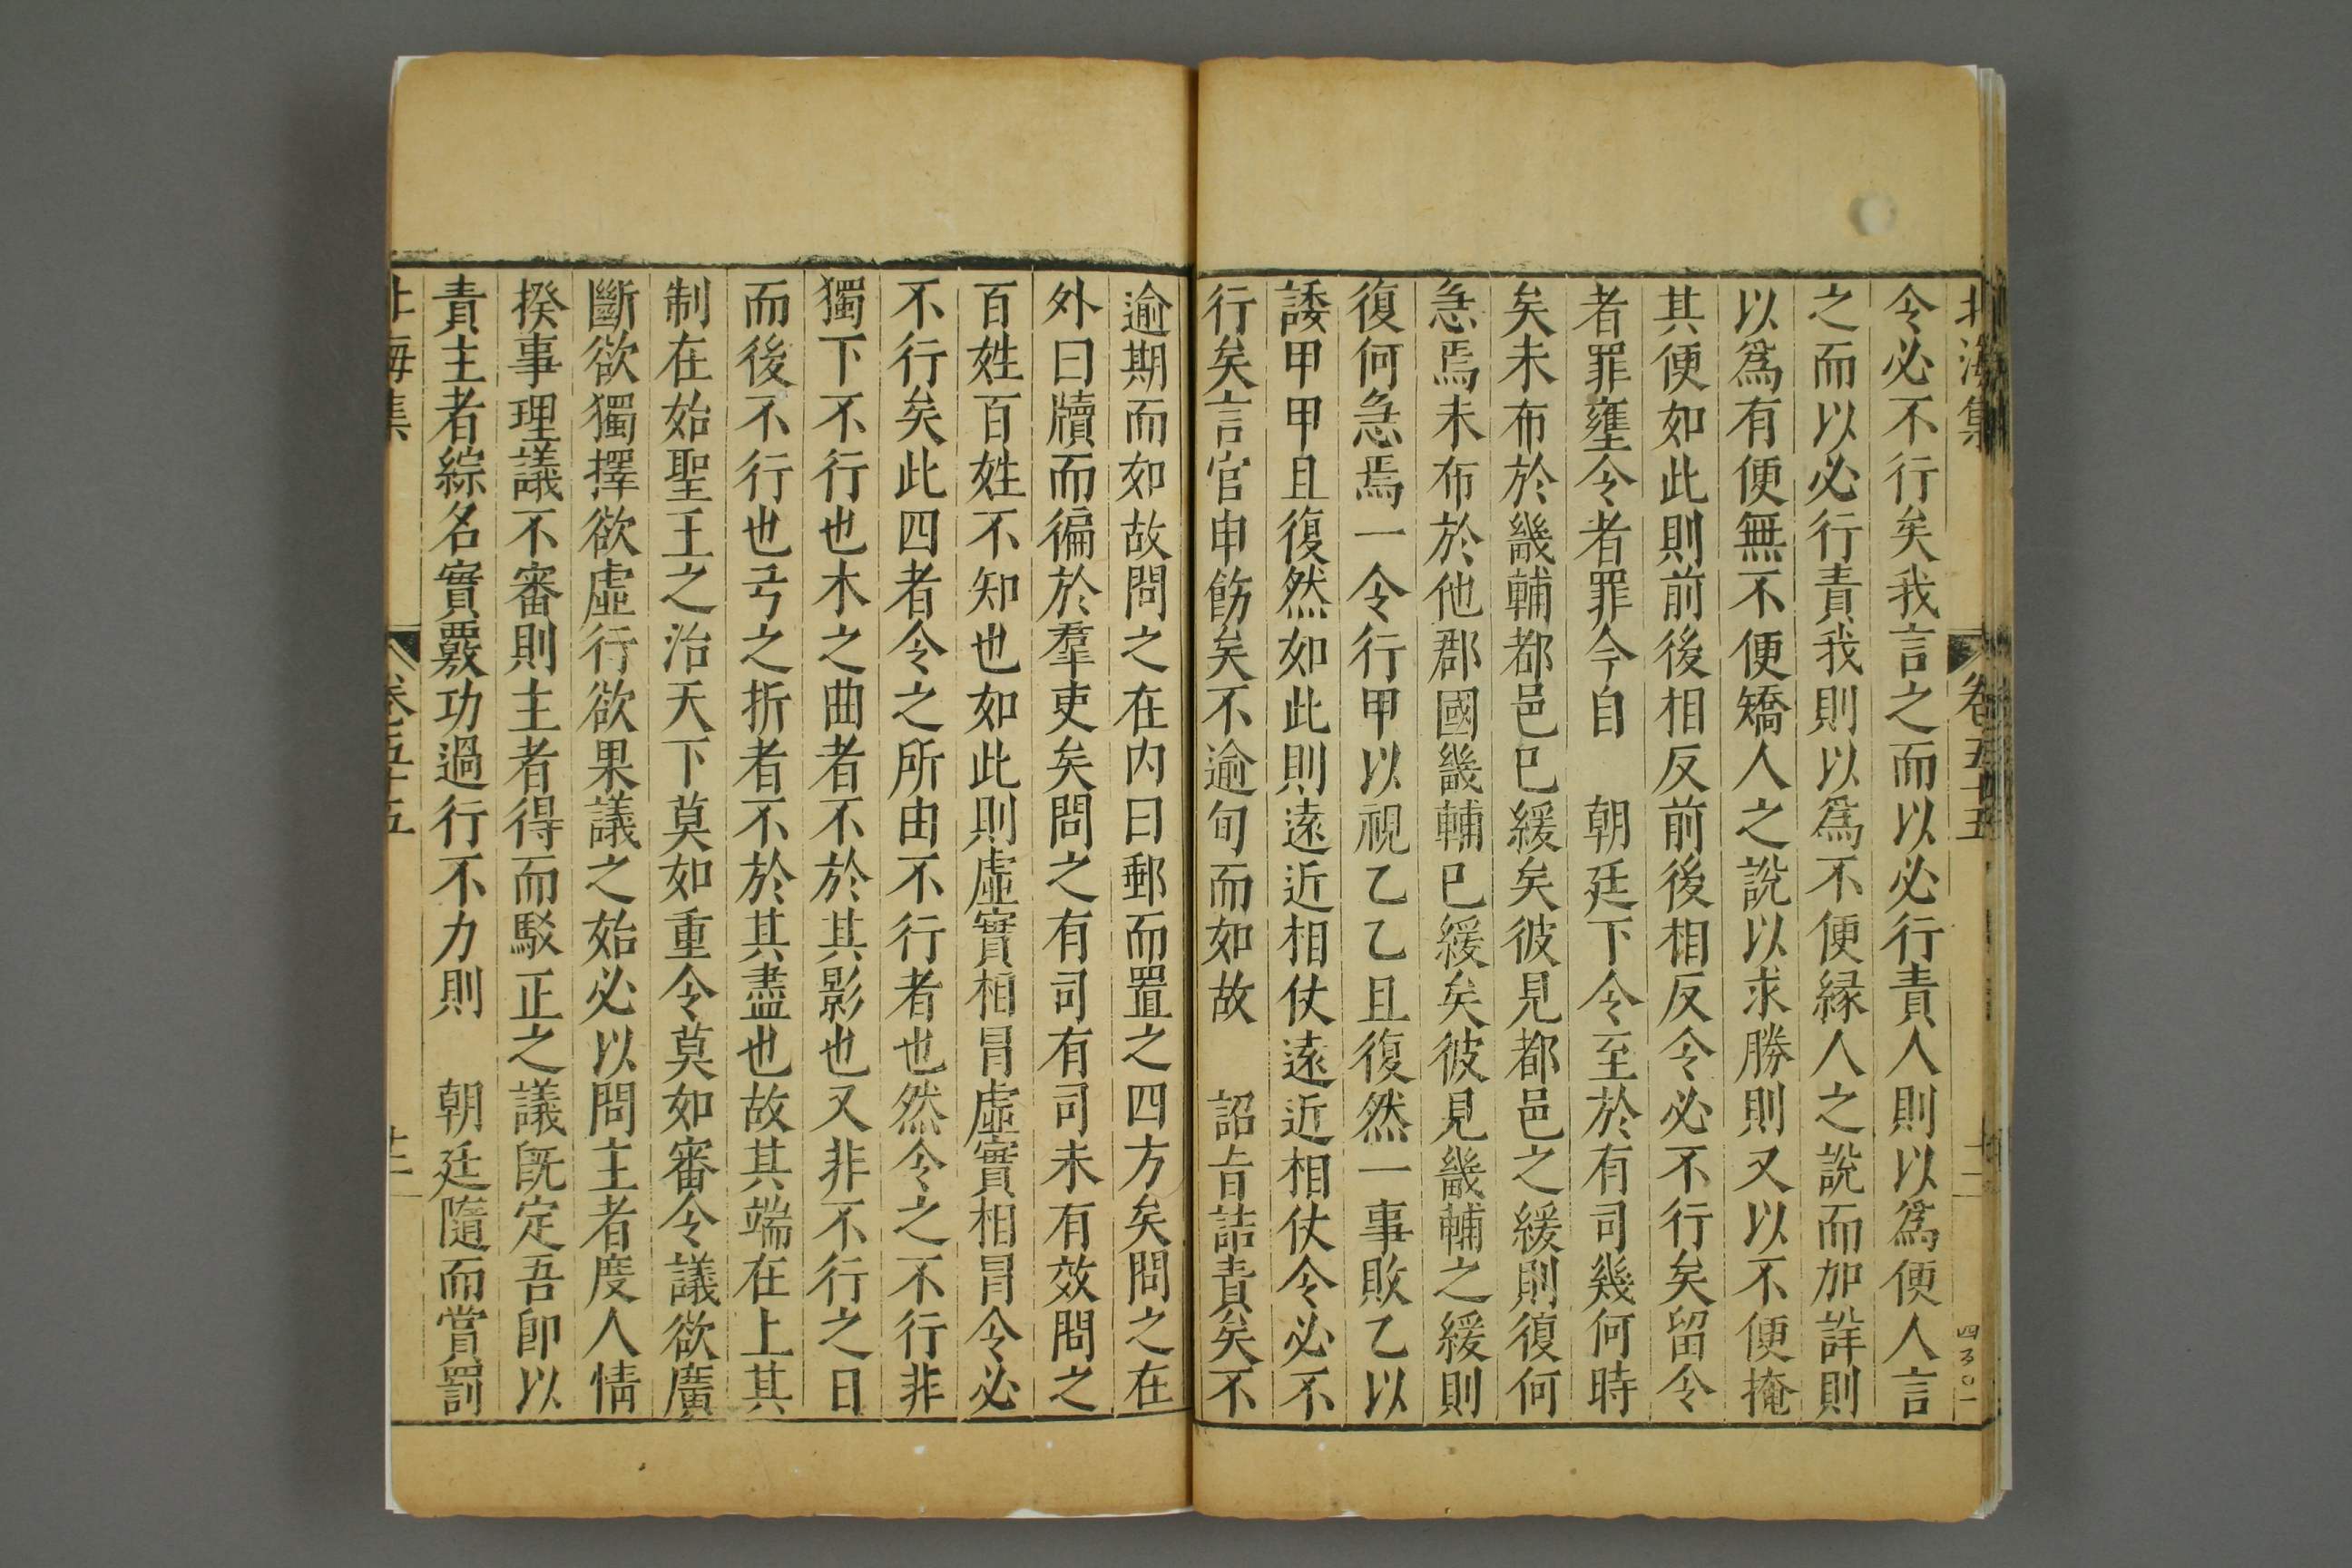 北海集 卷五十五 十一 四百〇一
令必不行矣我言之而以必行責人則以爲便人言
之而以必行責我則以爲不便緣人之說而加詳則
以爲有便無不便矯人之說以求勝則又以不便掩
其便如此則前後相反前後相反令必不行矣留令
者罪壅令者罪今自 朝廷下令至於有司幾何時
矣未布於畿輔都邑已緩矣彼見都邑之緩則復何
急焉未布於他郡國畿輔已緩矣彼見畿輔之緩則
復何急焉一令行甲以視乙乙且復然一事敗乙以
諉甲甲且復然如此則遠近相仗遠近相仗令必不
行矣言官申飭矣不逾旬而如故 詔旨詰責矣不
逾期而如故問之在内曰郵而置之四方矣問之在
外曰牘而徧於羣吏矣問之有司有司未有效問之
百姓百姓不知也如此則虛實相冒虛實相冒令必
不行矣此四者令之所由不行者也然令之不行非
獨下不行也木之曲者不於其影也又非不行之日
而後不行也弓之折者不於其盡也故其端在上其
制在始聖王之治天下莫如重令莫如審令議欲廣
斷欲獨擇欲虛行欲果議之始必以問主者度人情
揆事理議不審則主者得而駁正之議旣定吾卽以
責主者綜名實覈功過行不力則 朝廷隨而賞罰
北海集 卷五十五